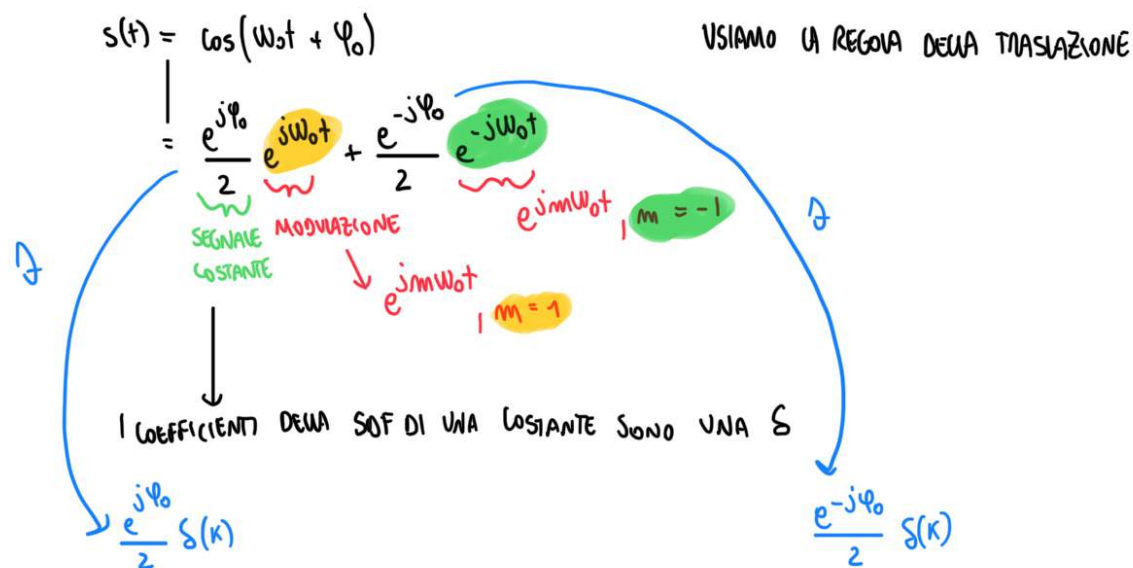 s(t) = cos(ω₀t + φ₀)
USIAMO LA REGOLA DELLA TRASLAZIONE
= e^{jφ₀}/2 e^{jω₀t} + e^{-jφ₀}/2 e^{-jω₀t}
SEGNALE COSTANTE
MODULAZIONE
e^{jmω₀t}, m = -1
e^{jmω₀t}, m = 1
I COEFFICIENTI DELLA SDF DI UNA COSTANTE SONO UNA δ
e^{jφ₀}/2 δ(K)
e^{-jφ₀}/2 δ(K)